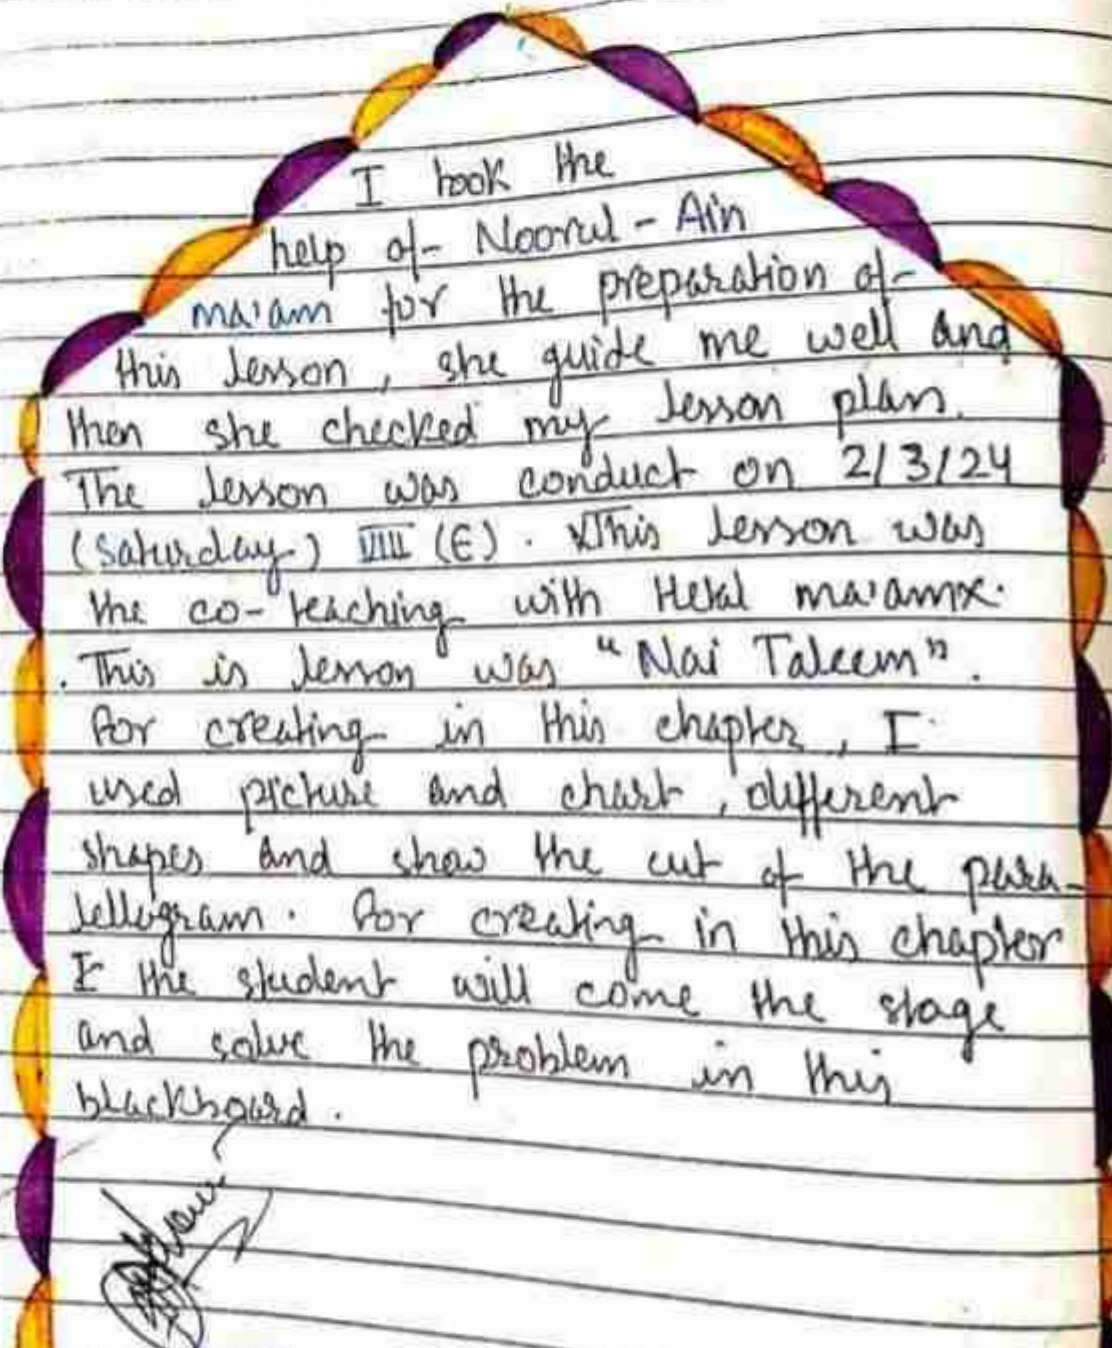 I took the
help of - Noorul - Ain
ma'am for the preparation of -
this lesson, she guide me well and
then she checked my lesson plan.
The lesson was conduct on 2/3/24
(Saturday) VIII (E). xThis lesson was
the co-teaching with Hetal ma'amx.
. This is lesson was "Nai Taleem".
For creating in this chapter, I
used picture and chart, different
shapes and show the cut of the para-
lellogram. For creating in this chapter
I the student will come the stage
and solve the problem in this
blackboard.